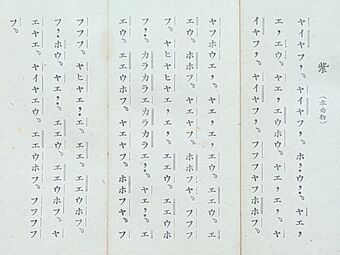 紫
ヤイヤフ，。ヤイヤフ，。ホ，ウ，。ヤエ，
エ，エウ。ヤエ，エウホウ。ヤエ，エウ。ヤ
イヤフ，。ヤイヤフ，。フフヤフホホフ。
ヤフホウ。ヤエ，ヤエ，エウ。エ
エウ。ホホフ。ヤエフ。ホホウヤ。フ
フ。ヤヒヤヒエ，。エ，エウ。エエウホ
フ，。カラカラエカラカラエ，。ヤエ，。エ
エウ。エエウホフ。ヤエヤフ。ホホフヤフ
フフフ。ヤヒヤエ，エ。エエウ。エエウホフ。
フ，ホウ。ヤエ，。エエウホフ。ヤ
エヤエ。ヤイヤエウ。エエウホフ。フフフフ
フ。